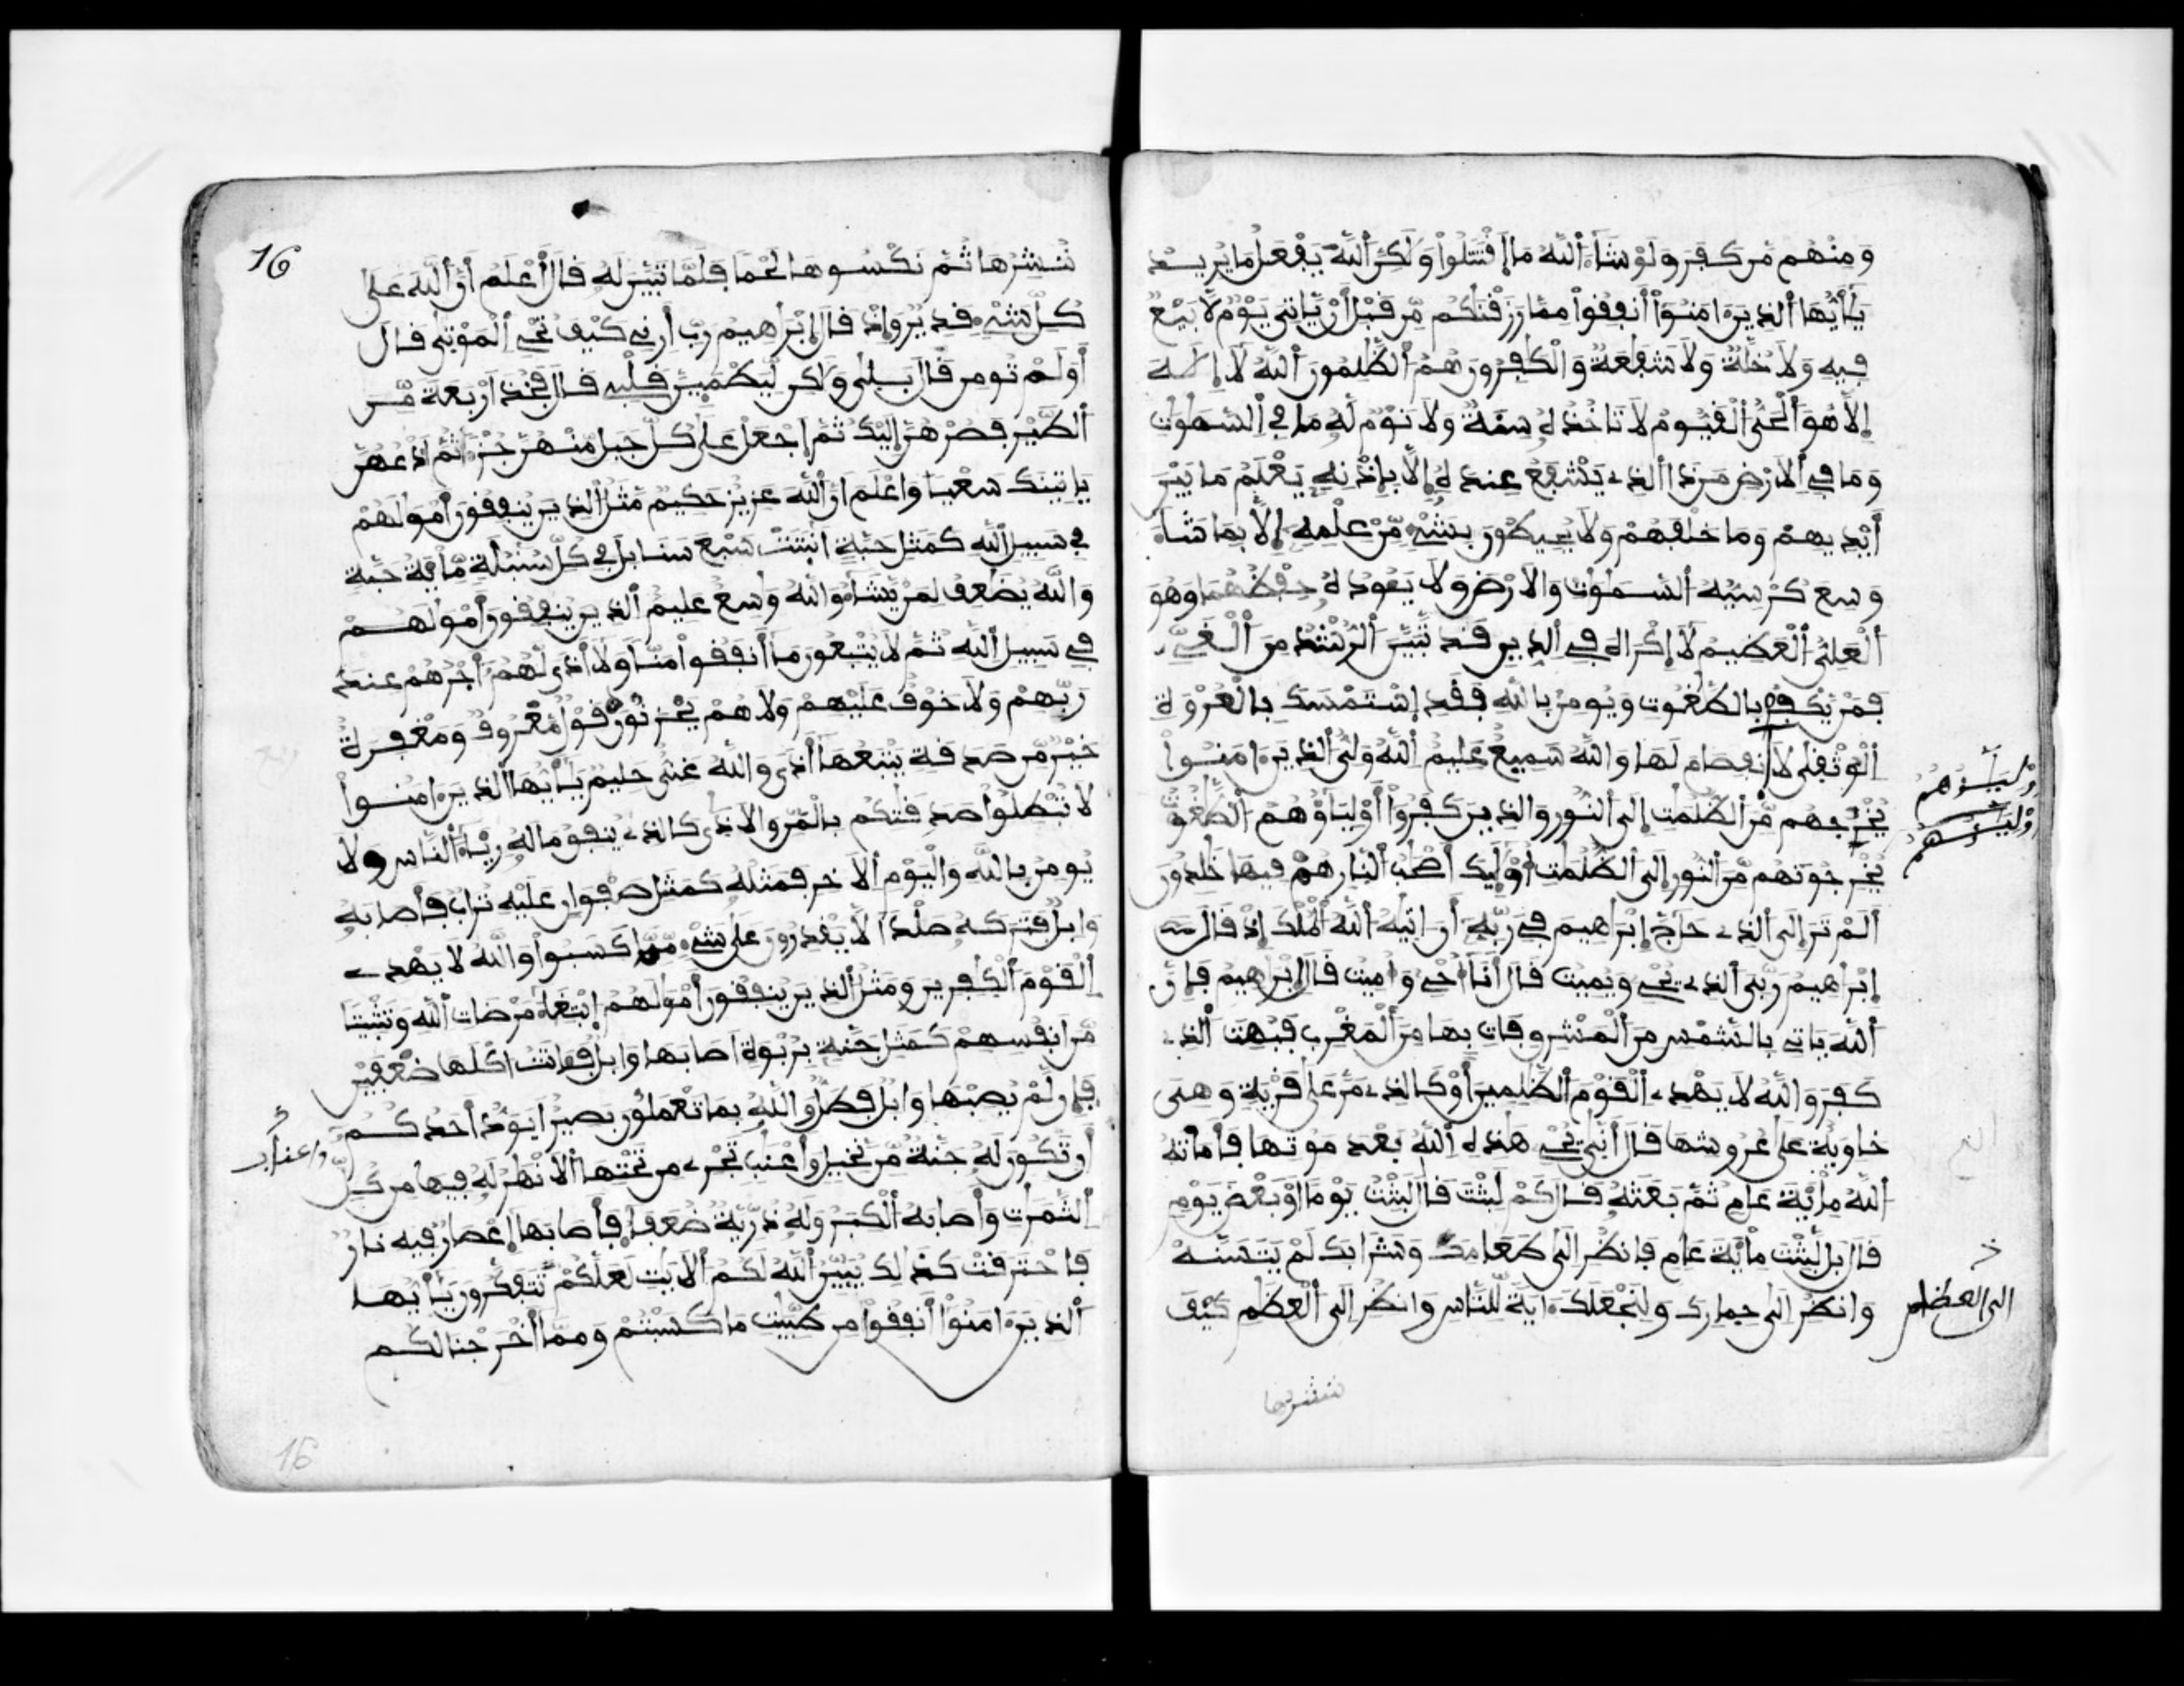 وَمِنْهُم مَّن كَفَرَ وَلَوْ شَآءَ اَ۬للَّهُ مَا اَ۪قْتَتَلُواْ وَلَكِنَّ اَ۬للَّهَ يَفْعَلُ مَا يُرِيدُ
يَٰأَيُّهَا اَ۬لذِينَ ءَامَنُوٓاْ أَنفِقُواْ مِمَّا رَزَقْنَٰكُم مِّن قَبْلِ أَنْ يَّاتِيَ يَوْمٌ لَّا بَيْعٌ
فِيهِ وَلَا خُلَّةٌ وَلَا شَفَٰعَةٌ وَالْكَٰفِرُونَ هُمُ اُ۬لظَّٰلِمُونَ اَ۬للَّهُ لَا إِلَٰهَ
إِلَّا هُوَ اَ۬لْحَيُّ اُ۬لْقَيُّومُ لَا تَاخُذُهُ سِنَةٌ وَلَا نَوْمٌ لَّهُ مَا فِي اِ۬لسَّمَٰوَٰتِ
وَمَا فِي اِ۬لَارْضِ مَن ذَا اَ۬لذِے يَشْفَعُ عِندَهُ إِلَّا بِإِذْنِهِ يَعْلَمُ مَا بَيْنَ
أَيْدِيهِمْ وَمَا خَلْفَهُمْ وَلَا يُحِيطُونَ بِشَےْءٍ مِّنْ عِلْمِهِ إِلَّا بِمَا شَآءَ
وَسِعَ كُرْسِيُّهُ اُ۬لسَّمَٰوَٰتِ وَالَارْضَ وَلَا يَـُٔودُهُ حِفْظُهُمَا وَهُوَ
اَ۬لْعَلِيُّ اُ۬لْعَظِيمُ لَا إِكْرَاهَ فِے اِ۬لدِّينِ قَد تَّبَيَّنَ اَ۬لرُّشْدُ مِنَ اَ۬لْغَيِّ
فَمَنْ يَّكْفُرْ بِالطَّٰغُوتِ وَيُومِنۢ بِاللَّهِ فَقَدِ اِ۪سْتَمْسَكَ بِالْعُرْوَةِ
اِ۬لْوُثْقَىٰ لَا اَ۪نفِصَامَ لَهَا وَاللَّهُ سَمِيعٌ عَلِيمٌ اَ۬للَّهُ وَلِيُّ اُ۬لذِينَ ءَامَنُواْ
يُخْرِجُهُم مِّنَ اَ۬لظُّلُمَٰتِ إِلَى اَ۬لنُّورِ وَالذِينَ كَفَرُوٓاْ أَوْلِيَآؤُهُمُ اُ۬لطَّٰغُوتُ
يُخْرِجُونَهُم مِّنَ اَ۬لنُّورِ إِلَى اَ۬لظُّلُمَٰتِ أُوْلَٰٓئِكَ أَصْحَٰبُ اُ۬لنَّارِ هُمْ فِيهَا خَٰلِدُونَ
أَلَمْ تَرَ إِلَى اَ۬لذِے حَآجَّ إِبْرَٰهِيمَ فِے رَبِّهِ أَنَ اٰتَىٰهُ اُ۬للَّهُ اُ۬لْمُلْكَ إِذْ قَالَ
إِبْرَٰهِيمُ رَبِّيَ اَ۬لذِے يُحْيِے وَيُمِيتُ قَالَ أَنَا أُحْيِے وَأُمِيتُ قَالَ إِبْرَٰهِيمُ فَإِنَّ
اَ۬للَّهَ يَاتِے بِالشَّمْسِ مِنَ اَ۬لْمَشْرِقِ فَاتِ بِهَا مِنَ اَ۬لْمَغْرِبِ فَبُهِتَ اَ۬لذِے
كَفَرَ وَاللَّهُ لَا يَهْدِے اِ۬لْقَوْمَ اَ۬لظَّٰلِمِينَ أَوْ كَالذِے مَرَّ عَلَىٰ قَرْيَةٍ وَهِيَ
خَاوِيَةٌ عَلَىٰ عُرُوشِهَا قَالَ أَنّٰى يُحْيِے هَٰذِهِ اِ۬للَّهُ بَعْدَ مَوْتِهَا فَأَمَاتَهُ
اُ۬للَّهُ مِاْئَةَ عَامٍ ثُمَّ بَعَثَهُ قَالَ كَمْ لَبِثْتَ قَالَ لَبِثْتُ يَوْماً أَوْ بَعْضَ يَوْمٍ
قَالَ بَل لَّبِثْتَ مِاْئَةَ عَامٍ فَانظُرِ اِلَىٰ طَعَامِكَ وَشَرَابِكَ لَمْ يَتَسَنَّهْ
وَانظُرِ اِلَىٰ حِمَارِكَ وَلِنَجْعَلَكَ ءَايَةً لِّلنَّاسِ وَانظُرِ اِلَى اَ۬لْعِظَٰمِ كَيْفَ
الى العظام
ننشرها
16
نُنشِرُهَا ثُمَّ نَكْسُوهَا لَحْماً فَلَمَّا تَبَيَّنَ لَهُ قَالَ أَعْلَمُ أَنَّ اَ۬للَّهَ عَلَىٰ
كُلِّ شَےْءٍ قَدِيرٌ وَإِذْ قَالَ إِبْرَٰهِيمُ رَبِّ أَرِنِے كَيْفَ تُحْيِ اِ۬لْمَوْتَىٰ قَالَ
أَوَلَمْ تُومِن قَالَ بَلَىٰ وَلَٰكِن لِّيَطْمَئِنَّ قَلْبِے قَالَ فَخُذَ اَرْبَعَةً مِّنَ
اَ۬لطَّيْرِ فَصُرْهُنَّ إِلَيْكَ ثُمَّ اَ۪جْعَلْ عَلَىٰ كُلِّ جَبَلٍ مِّنْهُنَّ جُزْءاً ثُمَّ اَ۟دْعُهُنَّ
يَاتِينَكَ سَعْياً وَاعْلَمَ اَنَّ اَ۬للَّهَ عَزِيزٌ حَكِيمٌ مَّثَلُ اُ۬لذِينَ يُنفِقُونَ أَمْوَٰلَهُمْ
فِے سَبِيلِ اِ۬للَّهِ كَمَثَلِ حَبَّةٍ اَنۢبَتَتْ سَبْعَ سَنَابِلَ فِے كُلِّ سُنۢبُلَةٍ مِّاْئَةُ حَبَّةٍ
وَاللَّهُ يُضَٰعِفُ لِمَنْ يَّشَآءُ وَاللَّهُ وَٰسِعٌ عَلِيمٌ اَ۬لذِينَ يُنفِقُونَ أَمْوَٰلَهُمْ
فِے سَبِيلِ اِ۬للَّهِ ثُمَّ لَا يُتْبِعُونَ مَا أَنفَقُواْ مَنّاً وَلَا أَذىً لَّهُمْ أَجْرُهُمْ عِندَ
رَبِّهِمْ وَلَا خَوْفٌ عَلَيْهِمْ وَلَا هُمْ يَحْزَنُونَ قَوْلٌ مَّعْرُوفٌ وَمَغْفِرَةٌ
خَيْرٌ مِّن صَدَقَةٍ يَتْبَعُهَا أَذىً وَاللَّهُ غَنِيٌّ حَلِيمٌ يَٰأَيُّهَا اَ۬لذِينَ ءَامَنُواْ
لَا تُبْطِلُواْ صَدَقَٰتِكُم بِالْمَنِّ وَالَاذَىٰ كَالذِے يُنفِقُ مَالَهُ رِئَآءَ اَ۬لنَّاسِ وَلَا
يُومِنُ بِاللَّهِ وَالْيَوْمِ اِ۬لَاخِرِ فَمَثَلُهُ كَمَثَلِ صَفْوَانٍ عَلَيْهِ تُرَابٌ فَأَصَابَهُ
وَابِلٌ فَتَرَكَهُ صَلْداً لَّا يَقْدِرُونَ عَلَىٰ شَےْءٍ مِّمَّا كَسَبُواْ وَاللَّهُ لَا يَهْدِے
اِ۬لْقَوْمَ اَ۬لْكَٰفِرِينَ وَمَثَلُ اُ۬لذِينَ يُنفِقُونَ أَمْوَٰلَهُمُ اُ۪بْتِغَآءَ مَرْضَاتِ اِ۬للَّهِ وَتَثْبِيتاً
مِّنَ اَنفُسِهِمْ كَمَثَلِ جَنَّةٍ بِرُبْوَةٍ اَصَابَهَا وَابِلٌ فَـَٔاتَتُ اكْلَهَا ضِعْفَيْنِ
فَإِن لَّمْ يُصِبْهَا وَابِلٌ فَطَلٌّ وَاللَّهُ بِمَا تَعْمَلُونَ بَصِيرٌ اَيَوَدُّ أَحَدُكُمُ
أَن تَكُونَ لَهُ جَنَّةٌ مِّن نَّخِيلٍ وَأَعْنَٰبٍ تَجْرِے مِن تَحْتِهَا اَ۬لَانْهَٰرُ لَهُ فِيهَا مِن كُلِّ
وأعناب
اِ۬لثَّمَرَٰتِ وَأَصَابَهُ اُ۬لْكِبَرُ وَلَهُ ذُرِّيَّةٌ ضُعَفَآءُ فَأَصَابَهَا إِعْصَارٌ فِيهِ نَارٌ
فَاحْتَرَقَتْ كَذَٰلِكَ يُبَيِّنُ اُ۬للَّهُ لَكُمُ اُ۬لَايَٰتِ لَعَلَّكُمْ تَتَفَكَّرُونَ يَٰأَيُّهَا
اَ۬لذِينَ ءَامَنُوٓاْ أَنفِقُواْ مِن طَيِّبَٰتِ مَا كَسَبْتُمْ وَمِمَّا أَخْرَجْنَا لَكُم
16